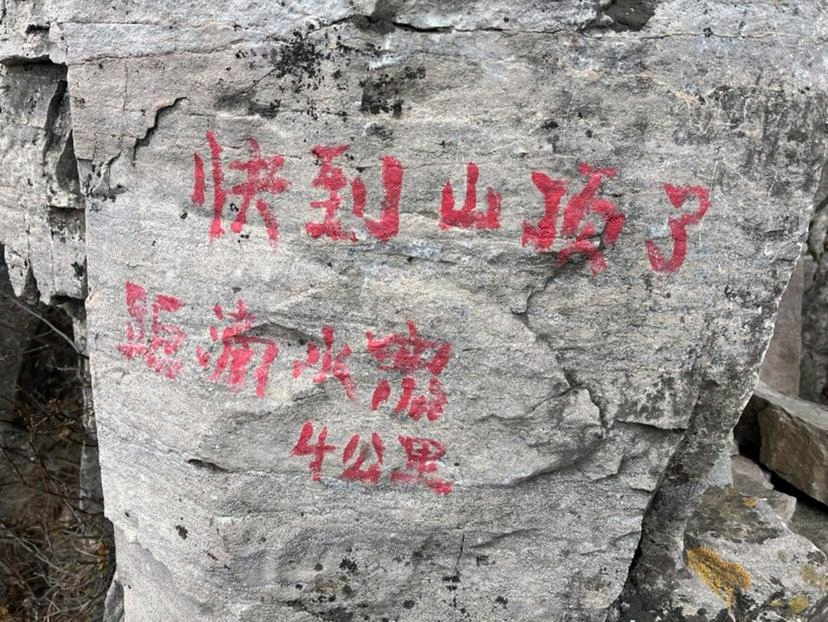 快到山顶了
距滴水
4公里